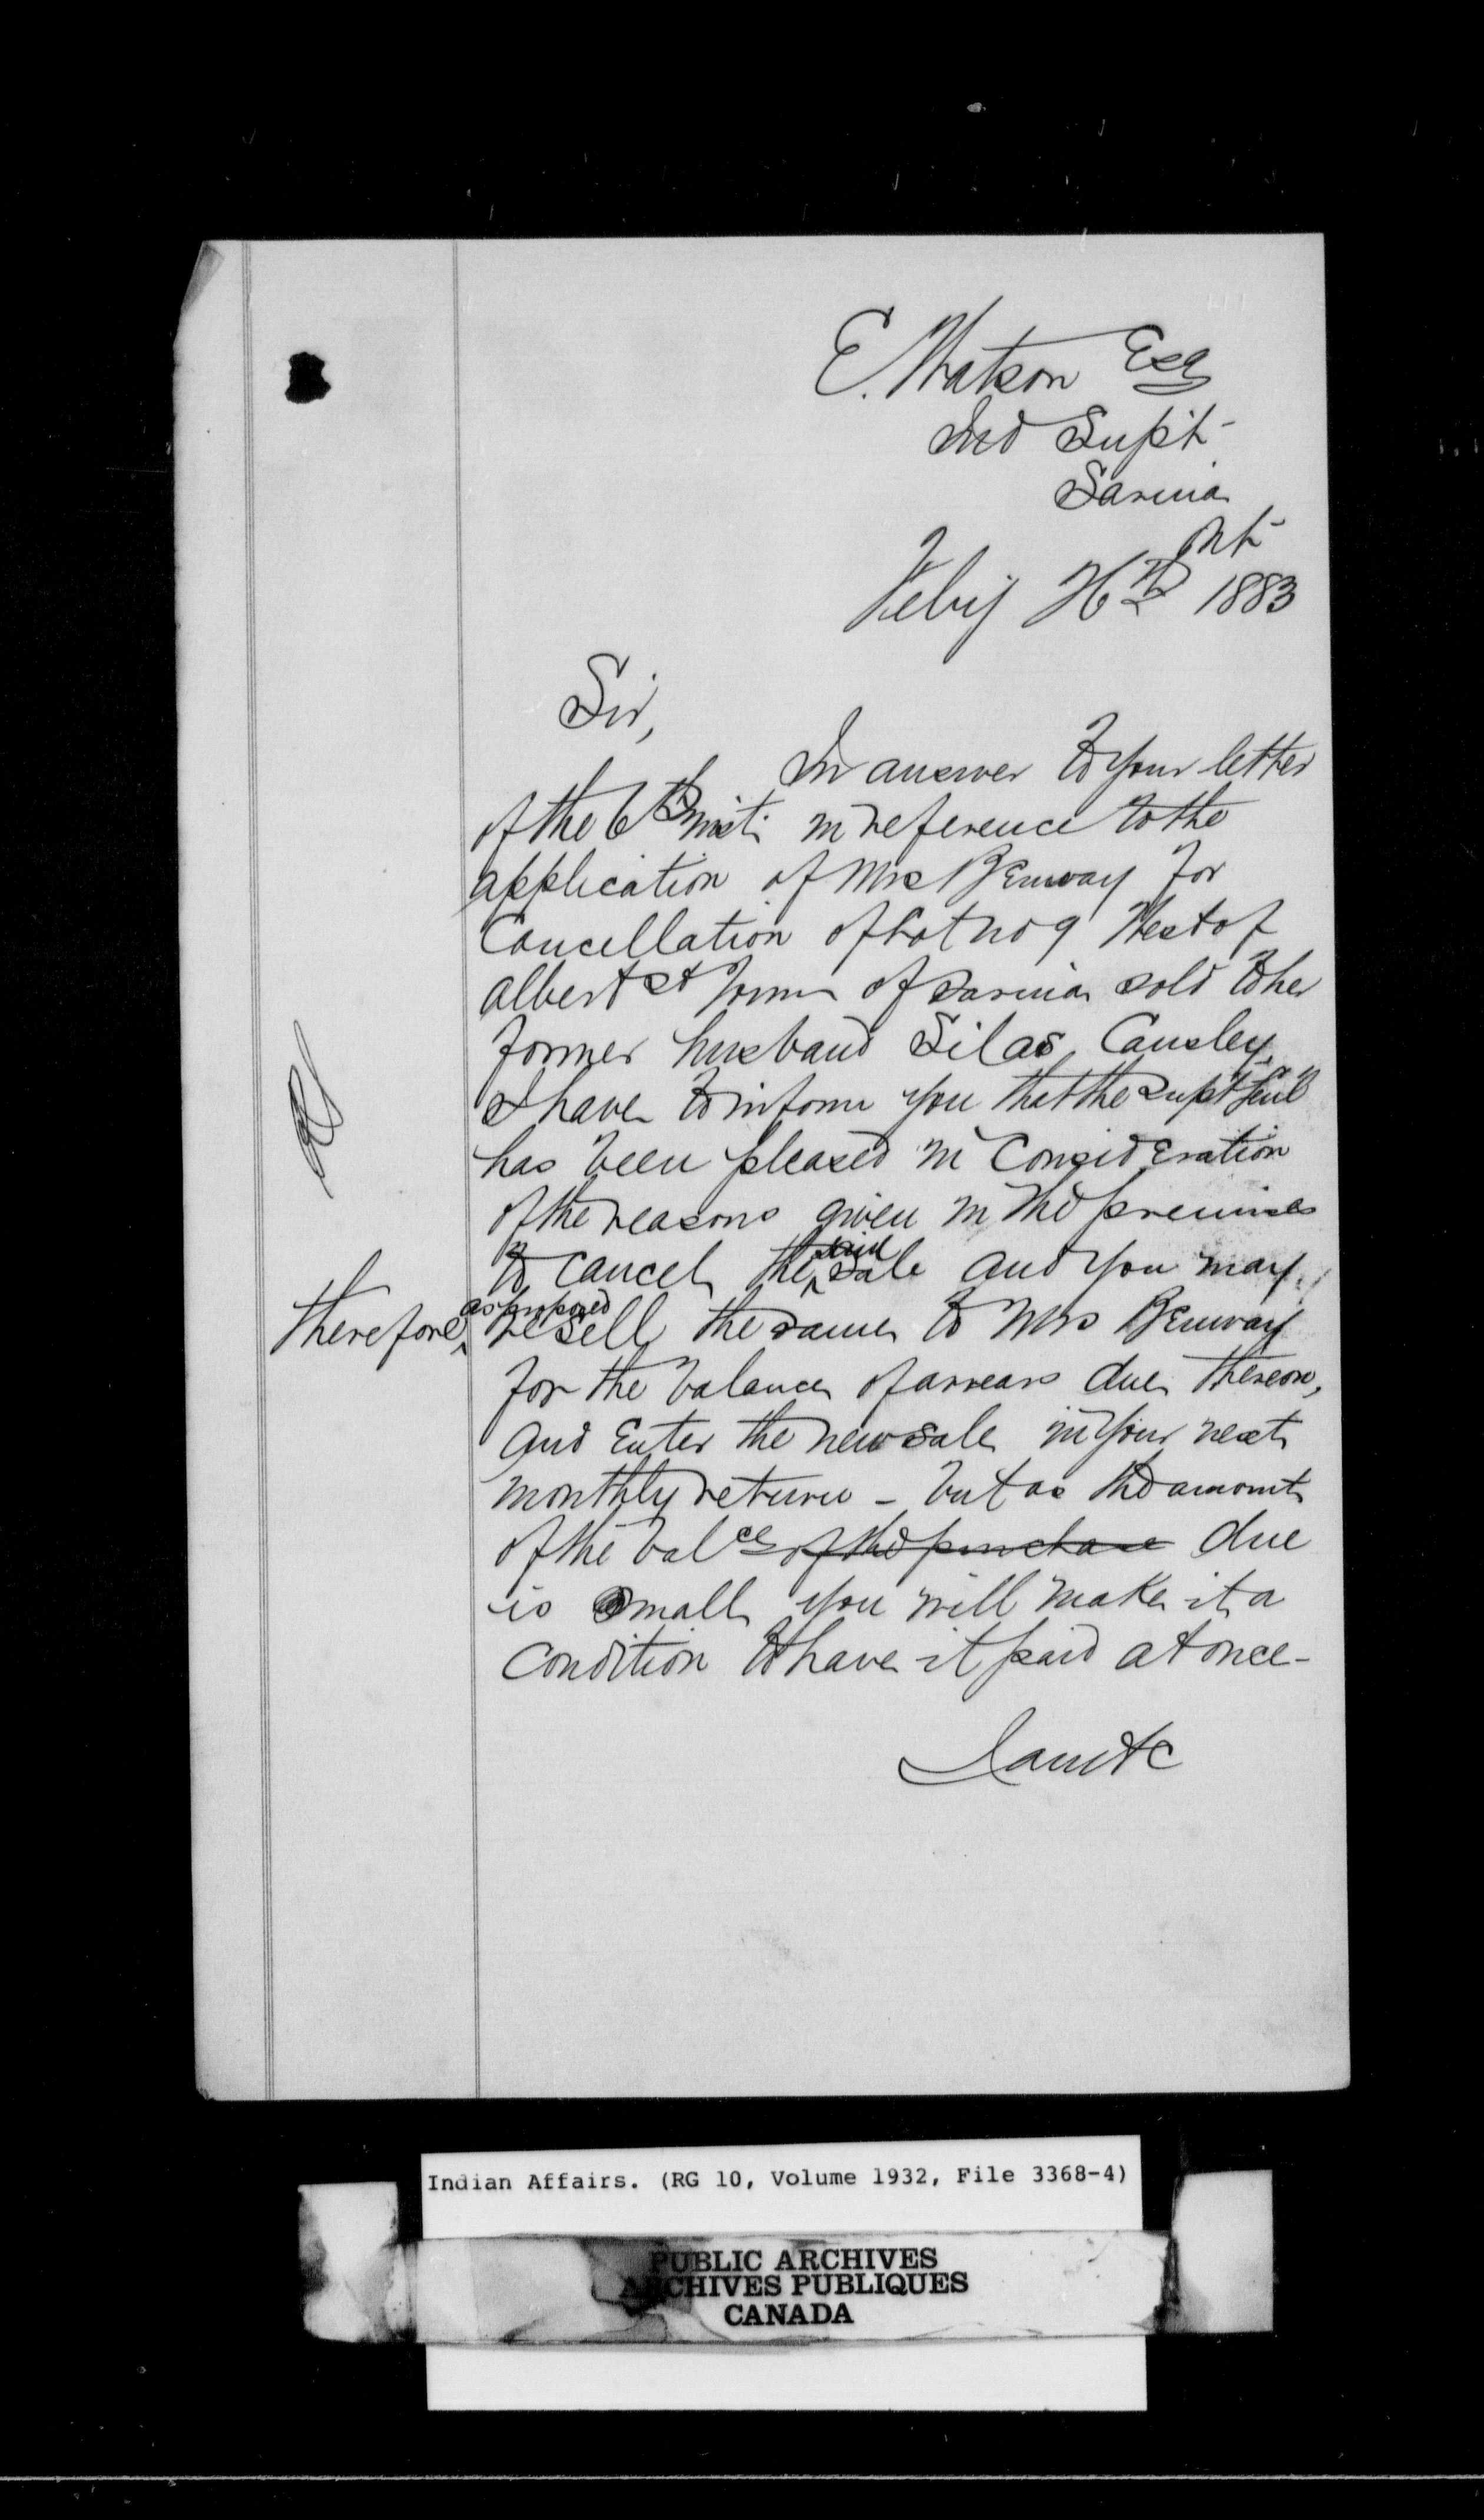 E. Watson Esq
Ind Supt
Sarnia
Ont
Feby 1883
Sir,
In answer to your letter
of the 6th inst. in reference to the
application of Mrs Benway for
Cancellation of Lot No 9 West of
Albert St Town of Sarnia sold to her
former husband Silas Causley,
I have to inform you that the Supt Genl
has been pleased in Consideration
of the reasons given in the premises
said
to Cancel the sale and you may
as proposed
therefore resell the same to Mrs Benway
for the balance of arrears due thereon,
and Enter the new sale in your next
monthly return - but as the amount
of the balce of the purchase due
is small you will make it a
Condition to have it paid at once -
I am &c
Indian Affairs. (RG 10, Volume 1932, File 3368-4)
PUBLIC ARCHIVES
ARCHIVES PUBLIQUES
CANADA